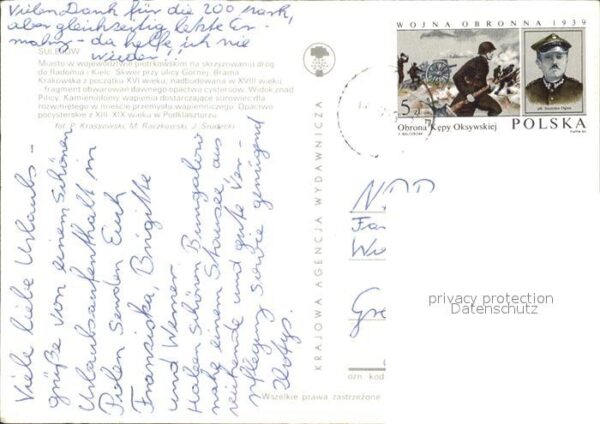 Vielen Dank für die 200 Mark,
aber gleichzeitig letzte Er-
mahng - da helfe ich nie
wieder!
SULEJÓW
Miasto w województwie piotrkowskim na skrzyżowaniu dróg
do Radomia i Kielc. Skwer przy ulicy Górnej. Brama
Krakowska z początku XVI wieku, nadbudowana w XVIII wieku,
fragment obwarowań dawnego opactwa cystersów. Widok znad
Pilicy. Kamieniołomy wapienia dostarczające surowiec dla
rozwiniętego w mieście przemysłu wapienniczego. Opactwo
pocysterskie z XIII-XIX wieku w Podklasztorzu
fot. P. Krassowski, M. Raczkowski, J. Siudecki
Viele liebe Urlaubs-
grüße von einem schönen
Urlaubsaufenthalt in
Polen senden Euch
Franziska, Brigitte
und Werner.
Haben schönen Bungalow
nahe einem Stausee aus
reichende und gute Ver-
pflegung sowie genügend
Zlotys.
KRAJOWA AGENCJA WYDAWNICZA
WOJNA OBRONNA 1939
5 zł
Obrona Kępy Oksywskiej
POLSKA
Fa
Wo
Gre
privacy protection
Datenschutz
ozn. kod
Wszelkie prawa zastrzeżone